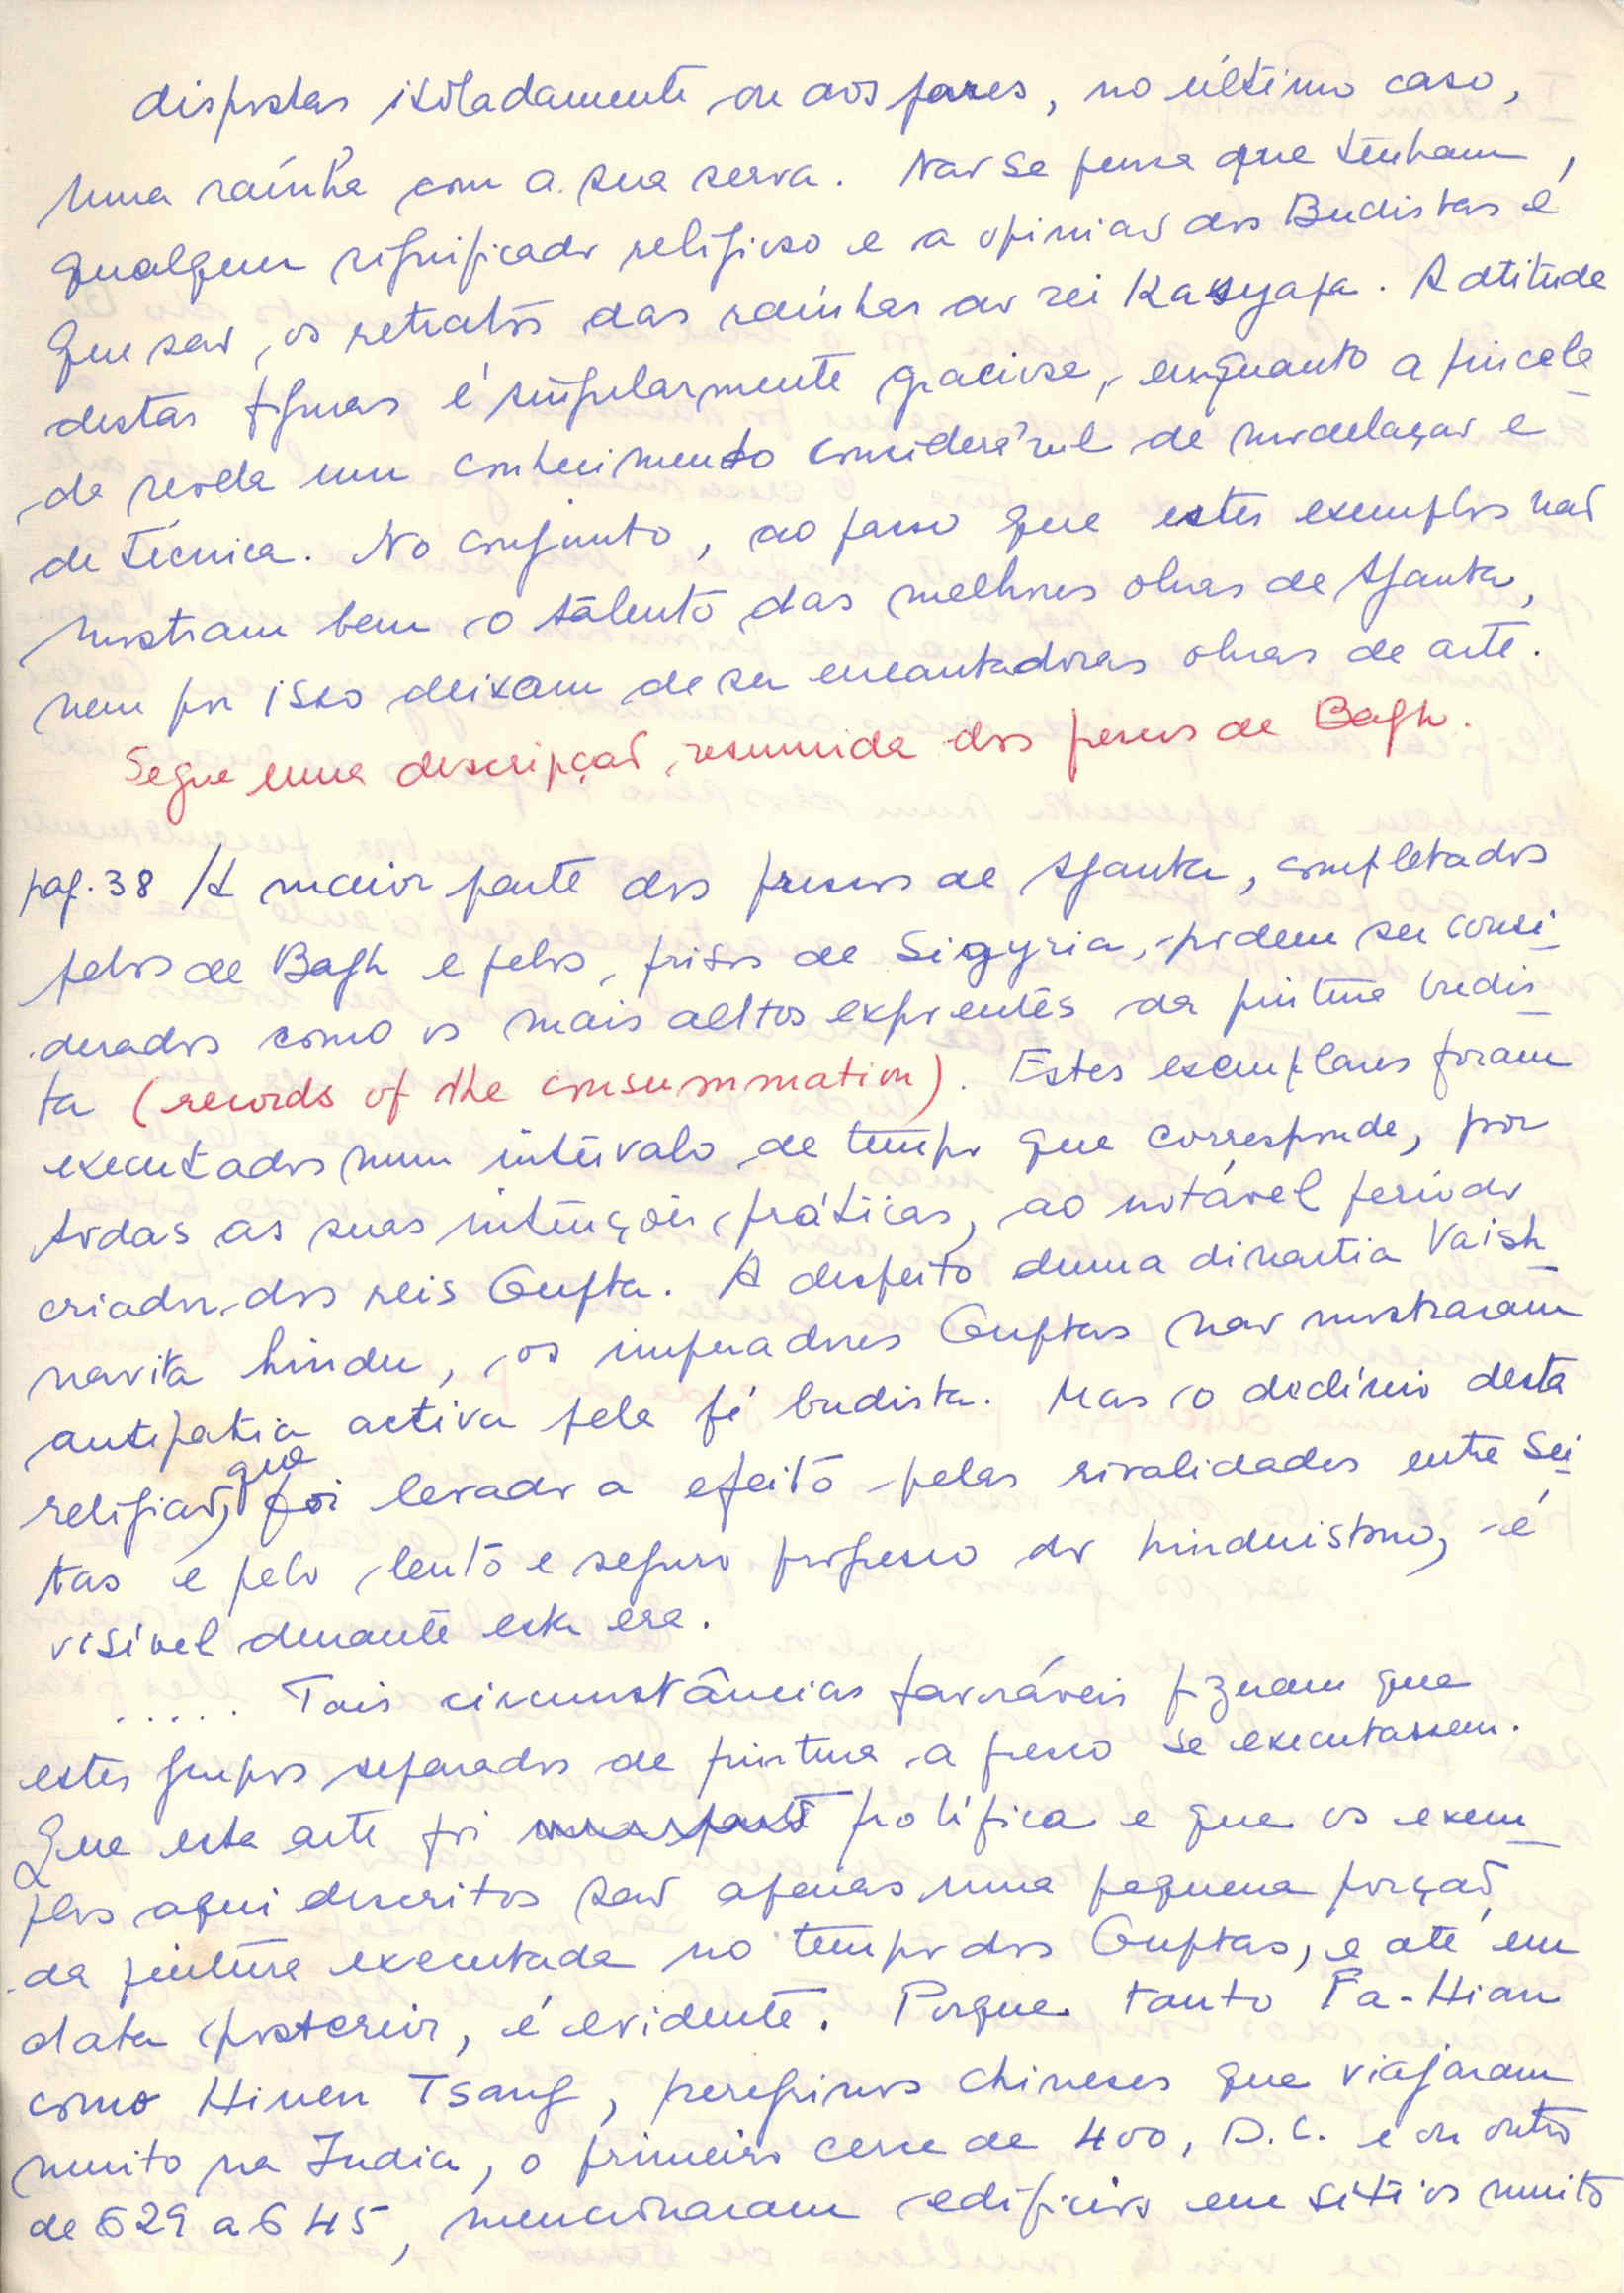 dispostas isoladamente ou aos pares, no último caso,
uma raínha com a sua serva. Não se pensa que tenham
qualquer significado religioso e a opinião dos Budistas é
que são os retratos das raínhas do rei Kasyapa. A atitude
destas figuras é singularmente graciosa, enquanto a pincela
da revela um conhecimento considerável de modelação e
de técnica. No conjunto, ao passo que estes exemplos não
mostram bem o talento das melhores obras de Ajanta,
nem por isso deixam de ser encantadoras obras de arte.
Segue uma descripção resumida dos frescos de Bagh.
pag. 38 / A maior parte dos frescos de Ajanta, completados
pelos de Bagh e pelos frisos de Sigyria, podem ser consi
derados como os mais altos expoentes da pintura budis
ta (records of the consummation). Estes exemplares foram
executados num intervalo de tempo que corresponde, por
todas as suas intenções práticas, ao notável período
criador dos reis Gupta. A despeito duma dinastia Vaish
navita hindu, os imperadores Guptas não mostraram
antipatia activa pela fé budista. Mas o declínio desta
religião, que foi levado a efeito pelas rivalidades entre sei
tas e pelo lento e seguro progresso do hinduismo, é
visível durante esta era.
..... Tais circunstâncias favoráveis fizeram que
estes grupos separados de pintura a fresco se executassem.
Que esta arte foi prolífica e que os exem
plos aqui descritos são apenas uma pequena porção
da pintura executada no tempo dos Guptas, e até em
data posterior, é evidente. Porque tanto Fa-Hian
como Hiuen Tsang, peregrinos chineses que viajaram
muito na India, o primeiro cerca de 400, D.C. e o outro
de 629 a 645, mencionaram edifícios em sítios muito